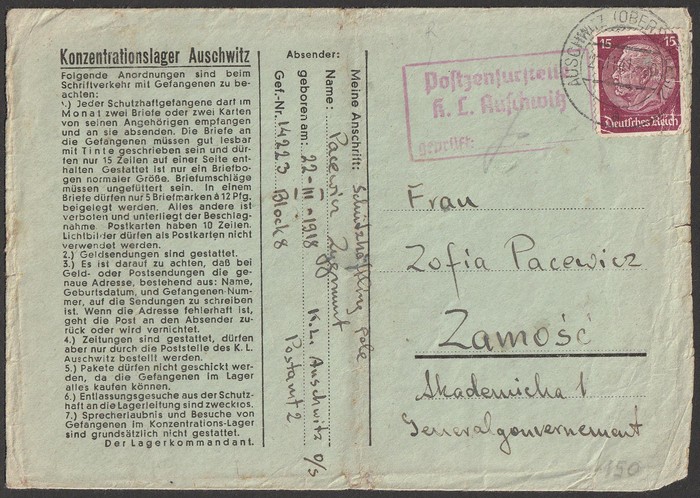 Konzentrationslager Auschwitz
Folgende Anordnungen sind beim
Schriftverkehr mit Gefangenen zu be-
achten:
1.) Jeder Schutzhaftgefangene darf im
Monat zwei Briefe oder zwei Karten
von seinen Angehörigen empfangen
und an sie absenden. Die Briefe an
die Gefangenen müssen gut lesbar
mit Tinte geschrieben sein und dür-
fen nur 15 Zeilen auf einer Seite ent-
halten Gestattet ist nur ein Briefbo-
gen normaler Größe. Briefumschläge
müssen ungefüttert sein. In einem
Briefe dürfen nur 5 Briefmarken à 12 Pfg.
beigelegt werden. Alles andere ist
verboten und unterliegt der Beschlag-
nahme Postkarten haben 10 Zeilen.
Lichtbilder dürfen als Postkarten nicht
verwendet werden.
2.) Geldsendungen sind gestattet.
3.) Es ist darauf zu achten, daß bei
Geld- oder Postsendungen die ge-
naue Adresse, bestehend aus: Name,
Geburtsdatum, und Gefangenen-Num-
mer, auf die Sendungen zu schreiben
ist. Wenn die Adresse fehlerhaft ist,
geht die Post an den Absender zu-
rück oder wird vernichtet.
4.) Zeitungen sind gestattet, dürfen
aber nur durch die Poststelle des K. L.
Auschwitz bestellt werden.
5.) Pakete dürfen nicht geschickt wer-
den, da die Gefangenen im Lager
alles kaufen können.
6.) Entlassungsgesuche aus der Schutz-
haft an die Lagerleitung sind zwecklos.
7.) Sprecherlaubnis und Besuche von
Gefangenen im Konzentrations-Lager
sind grundsätzlich nicht gestattet.
Der Lagerkommandant.
Absender:
Meine Anschrift: Schutzhäftling Pole
Name: Pacewicz Zygmunt
geboren am: 22-III-1918 K.L. Auschwitz O/S
Gef.-Nr. 14223 Block 8 Postamt 2
Postzensurstelle
K. L. Auschwitz
geprüft:
AUSCHWITZ (OBERS
15 15
Deutsches Reich
Frau
Zofia Pacewicz
Zamość
Akademicka 1
Generalgouvernement
150